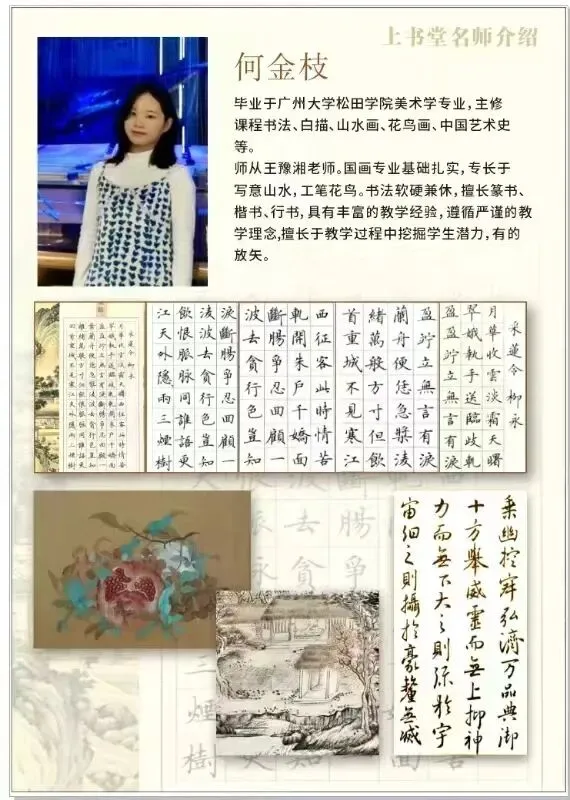 上书堂名师介绍
何金枝
毕业于广州大学松田学院美术学专业，主修
课程书法、白描、山水画、花鸟画、中国艺术史
等。
师从王豫湘老师。国画专业基础扎实，专长于
写意山水，工笔花鸟。书法软硬兼休，擅长篆书、
楷书、行书，具有丰富的教学经验，遵循严谨的教
学理念,擅长于教学过程中挖掘学生潜力，有的
放矢。
采蓮令 柳永
月華收雲淡霜天曙
翠娥執手送臨歧軋
盈盈竚立無言有淚
盈竚立無言有淚
蘭舟便恁急槳淩
緒萬般方寸但飲
首重城不見寒江
西征客此時情苦
軋開朱戶千嬌面
斷腸爭忍回顧一
波去貪行色豈知
淚斷腸爭忍回顧一
淩波去貪行色豈知
飲恨脈脈同誰語更
江天外隱隱兩三煙樹
乘幽控寂弘濟万品典御
十方舉威靈而無上抑神
力而無下大之則彌於宇
宙細之則攝於毫釐無滅